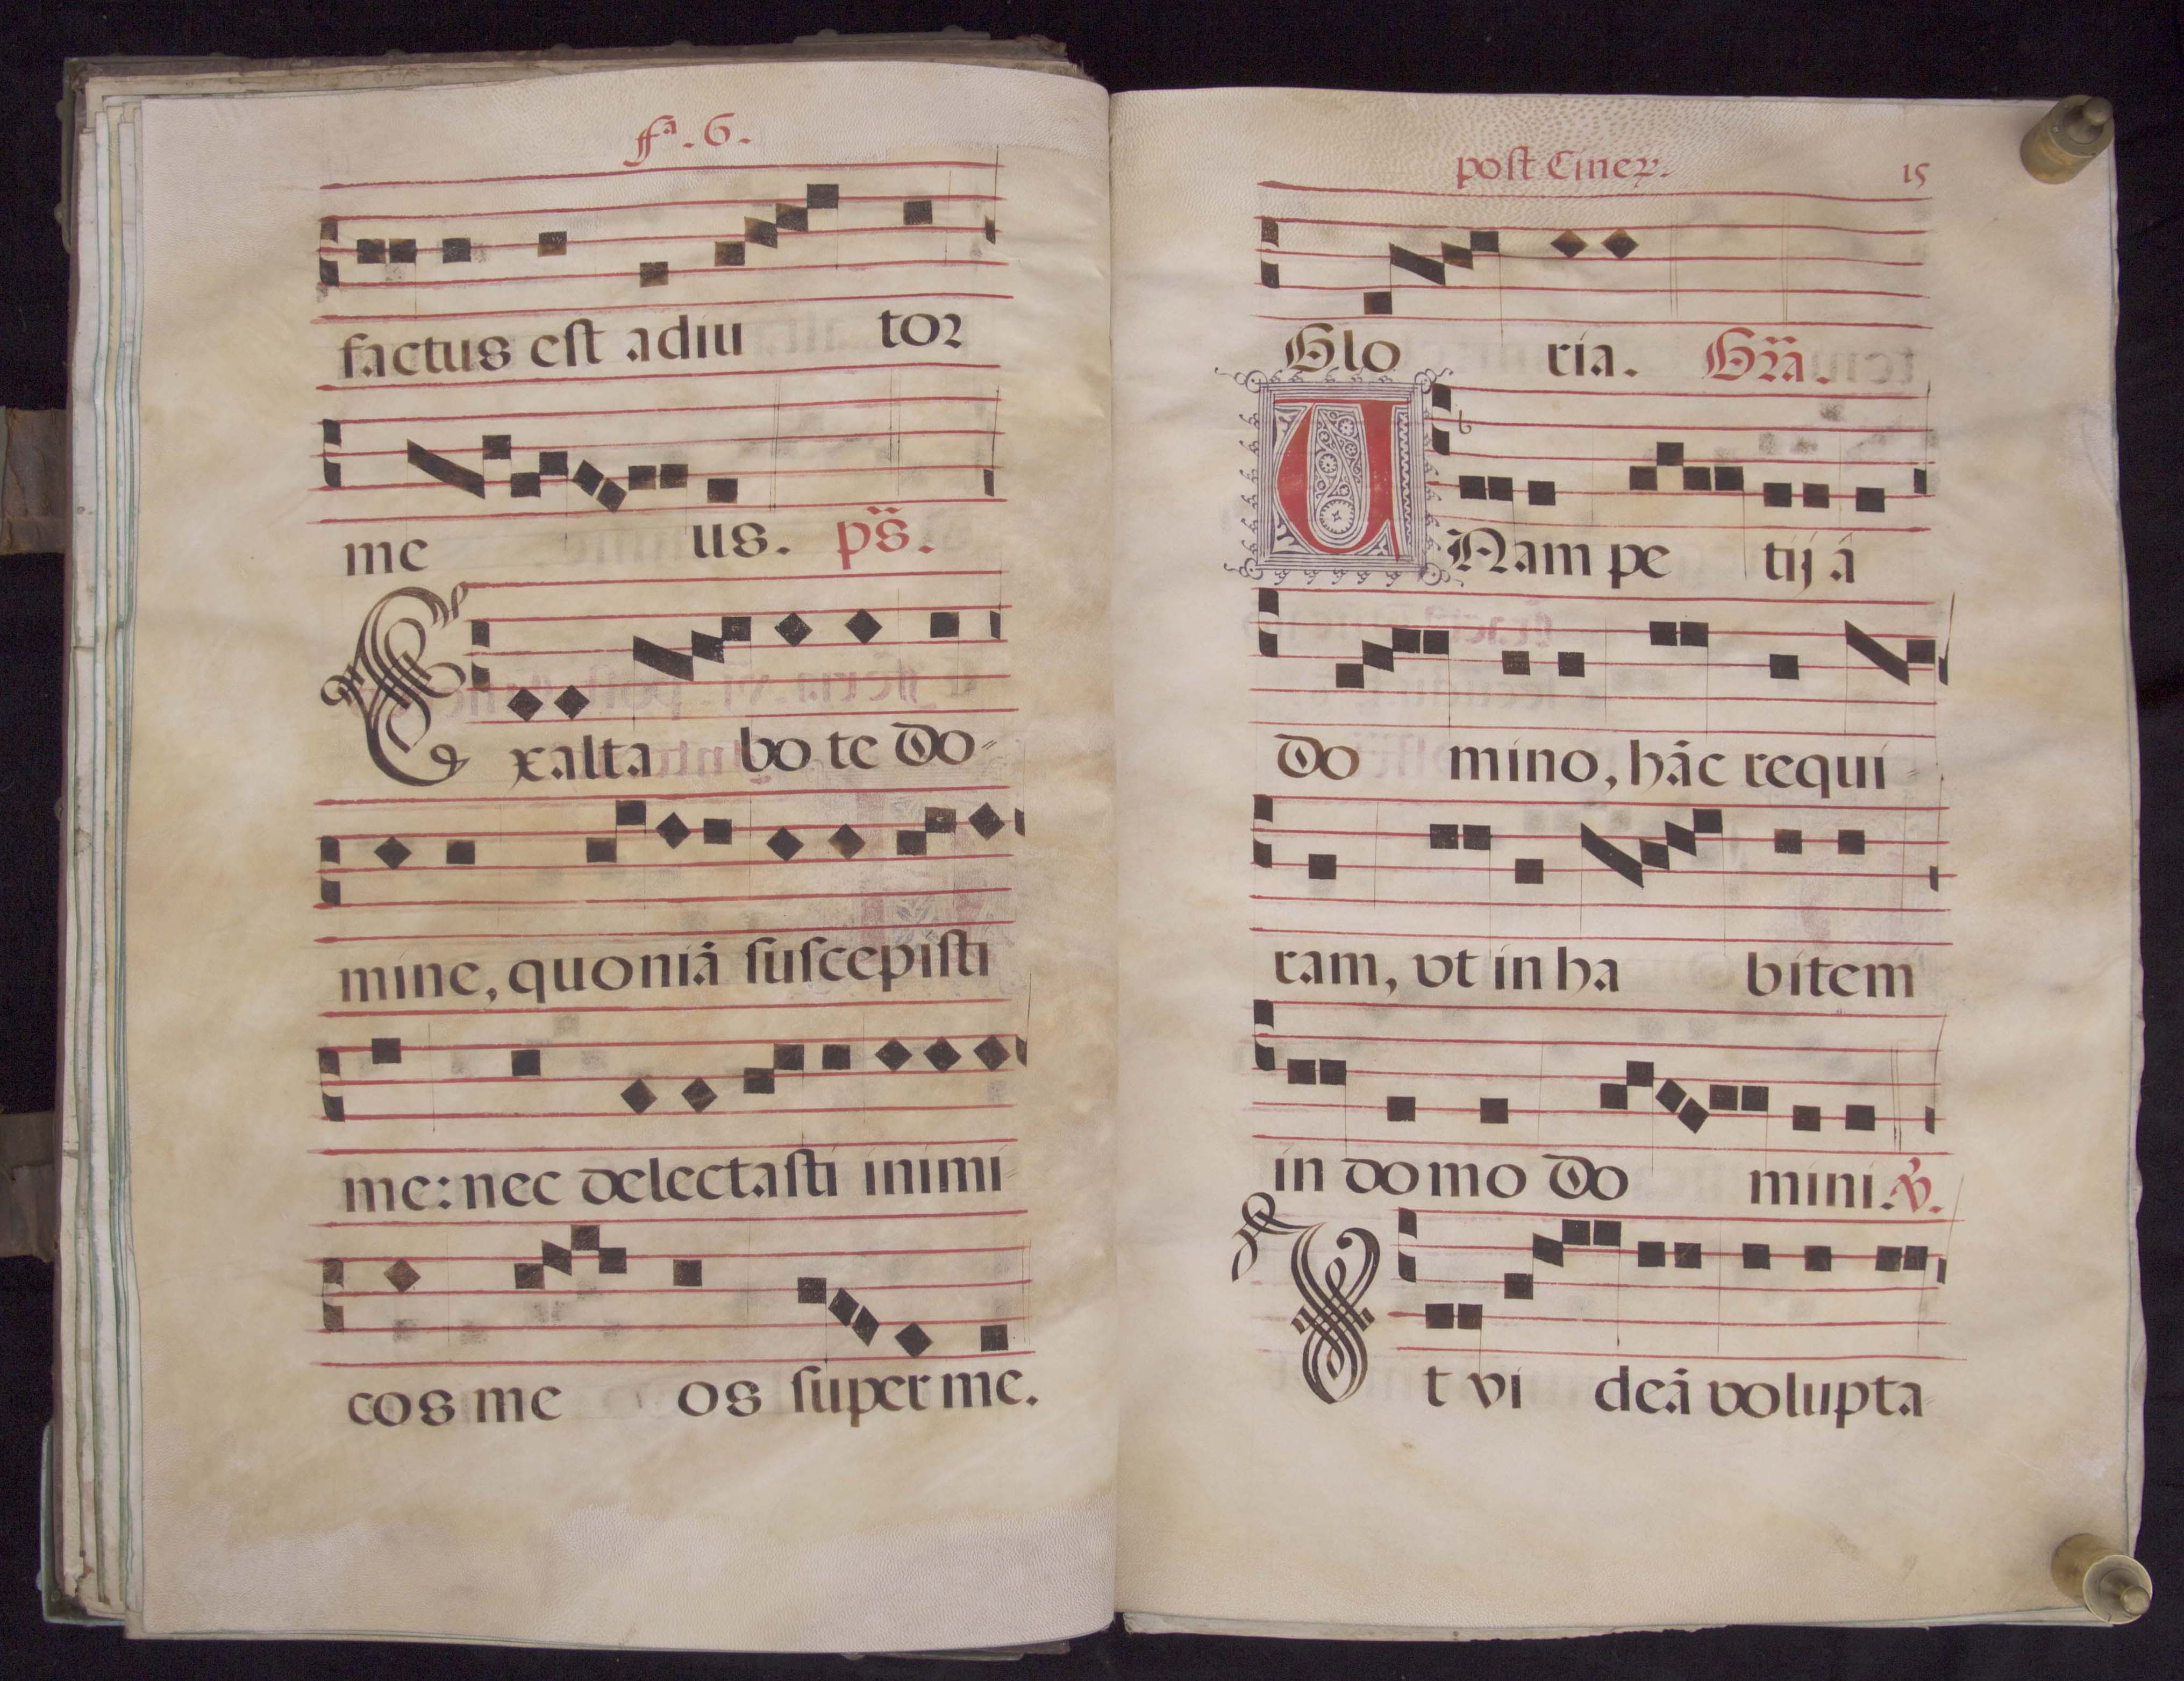 fª. 6.
factus est adiu tor
me us. ps̃.
Exalta bo te Do-
mine, quoniã suscepisti
me: nec delectasti inimi-
cos me os super me.
post Ciner. 15
Glo ria. Gr̃a.
UNam pe tij â
Do mino, hãc requi-
ram, vt in ha bitem
in domo Do mini. ℣.
Vt vi deã volupta-